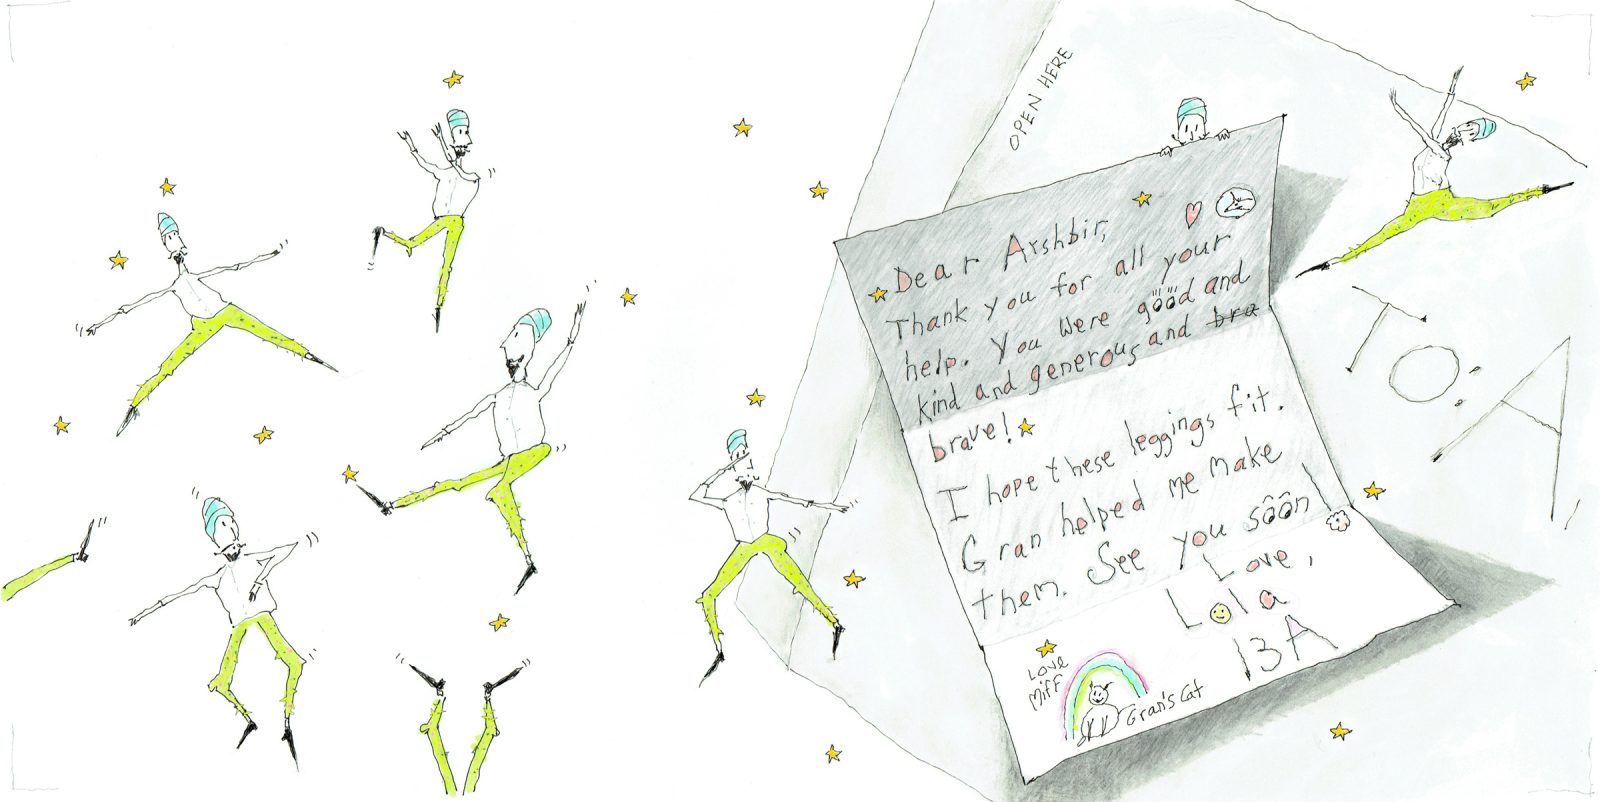 OPEN HERE
Dear Arshbir,
Thank you for all your
help. You were good and
kind and generous and bra
brave!
I hope these leggings fit.
Gran helped me make
them. See you soon
Love,
Lola
13A
LOVE
MiFF
Gran's Cat
TO: A